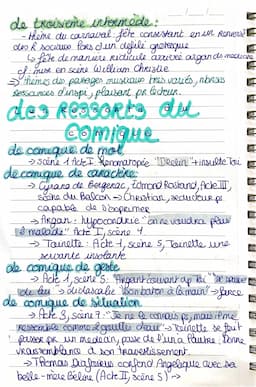 de troisième intermède :
- thème du carnaval : fête consistant en un renversement
des R sociaux lors d'un défilé grotesque
↳ fête de manière ridicule arrivée argan de médecine
cf mise en scène William Christie
→ thèmes des passages musicaux très variés, nbreuses
ressources d'inspi, plaisent pr lecteur.
des ressorts du
comique
de comique de mot
→ scène 1 Acte I onomatopée "Drelin" + insulte Toi
de comique de caractère :
→ Cyrano de Bergerac, Edmond Rostand, Acte III,
scène du Balcon → Christian, séducteur pr
capable de s'exprimer
→ Argan : hypocondrie "on ne voudra plus
malade" Acte I, scène 4
→ Toinette : Acte 1, scène 5, Toinette une
servante insolente
de comique de geste
→ Acte 1, scène 5 : "Argant courant ap Toi"
→ didascalie "Son baton à la main" → farce
de comique de situation
→ Acte 3, scène 7 : "Je ne le connais pas, mais il me
ressemble comme 2 gouttes d'eau" → Toinette se fait
passer pr un medecin, passe de l'un à l'autre
vraisemblance à son travestissement.
→ Thomas Diafoirus confond Angélique avec sa
belle-mère Béline (Acte II, scène 5) →